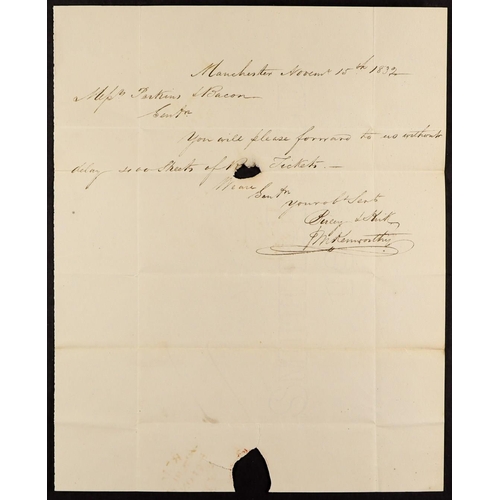 Manchester Novemr 15th 1832
Messrs Perkins & Bacon
Gentn
You will please forward to us without
delay 5000 Sheets of Tickets.—
We are Gentn
Your obt Servts
Pacey & Kirk
J W Kenworthy